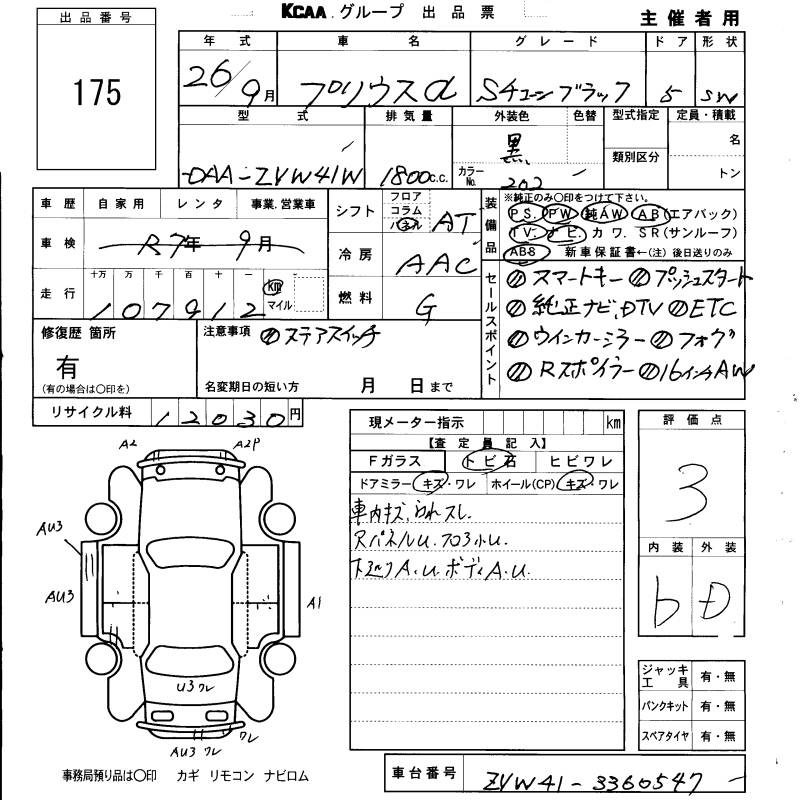 出品番号
175
KCAA グループ 出品票
主催者用
年式 車名 グレード ドア 形状
26/9月 プリウスα Sチューンブラック 5 SW
型式 排気量 外装色 色替 型式指定 定員・積載
DAA-ZVW41W 1800c.c. 黒 カラーNo. 202 類別区分 名 トン
車歴 自家用 レンタ 事業.営業車
車検 R7年 9月
走行 十万 万 千 百 十 一 km マイル
107912
シフト フロア コラム パネル AT
冷房 AAC
燃料 G
装備品 ※純正のみ○印をつけて下さい。
PS. PW 純AW AB(エアバック)
TV. ナビ. カワ. SR(サンルーフ)
ABS 新車保証書←(注)後日送りのみ
セールスポイント
スマートキー プッシュスタート
純正ナビ.DTV ETC
ウインカーミラー フォグ
Rスポイラー 16インチAW
修復歴 箇所
有
(有の場合は○印を)
注意事項 ステアスイッチ
名変期日の短い方 月 日まで
リサイクル料 12030円
現メーター指示 km
【査定員記入】
Fガラス トビ石 ヒビワレ
ドアミラー キズ・ワレ ホイール(CP) キズ・ワレ
車内キズ.られスレ.
RパネルU. フロア小U.
下廻りA.U. ボディA.U.
評価点
3
内装 外装
b D
A2 A2P
AU3
AU3
A1
U3ワレ
AU3 ワレ ワレ
ジャッキ工具 有・無
パンクキット 有・無
スペアタイヤ 有・無
事務局預り品は○印 カギ リモコン ナビロム
車台番号 ZVW41-3360547